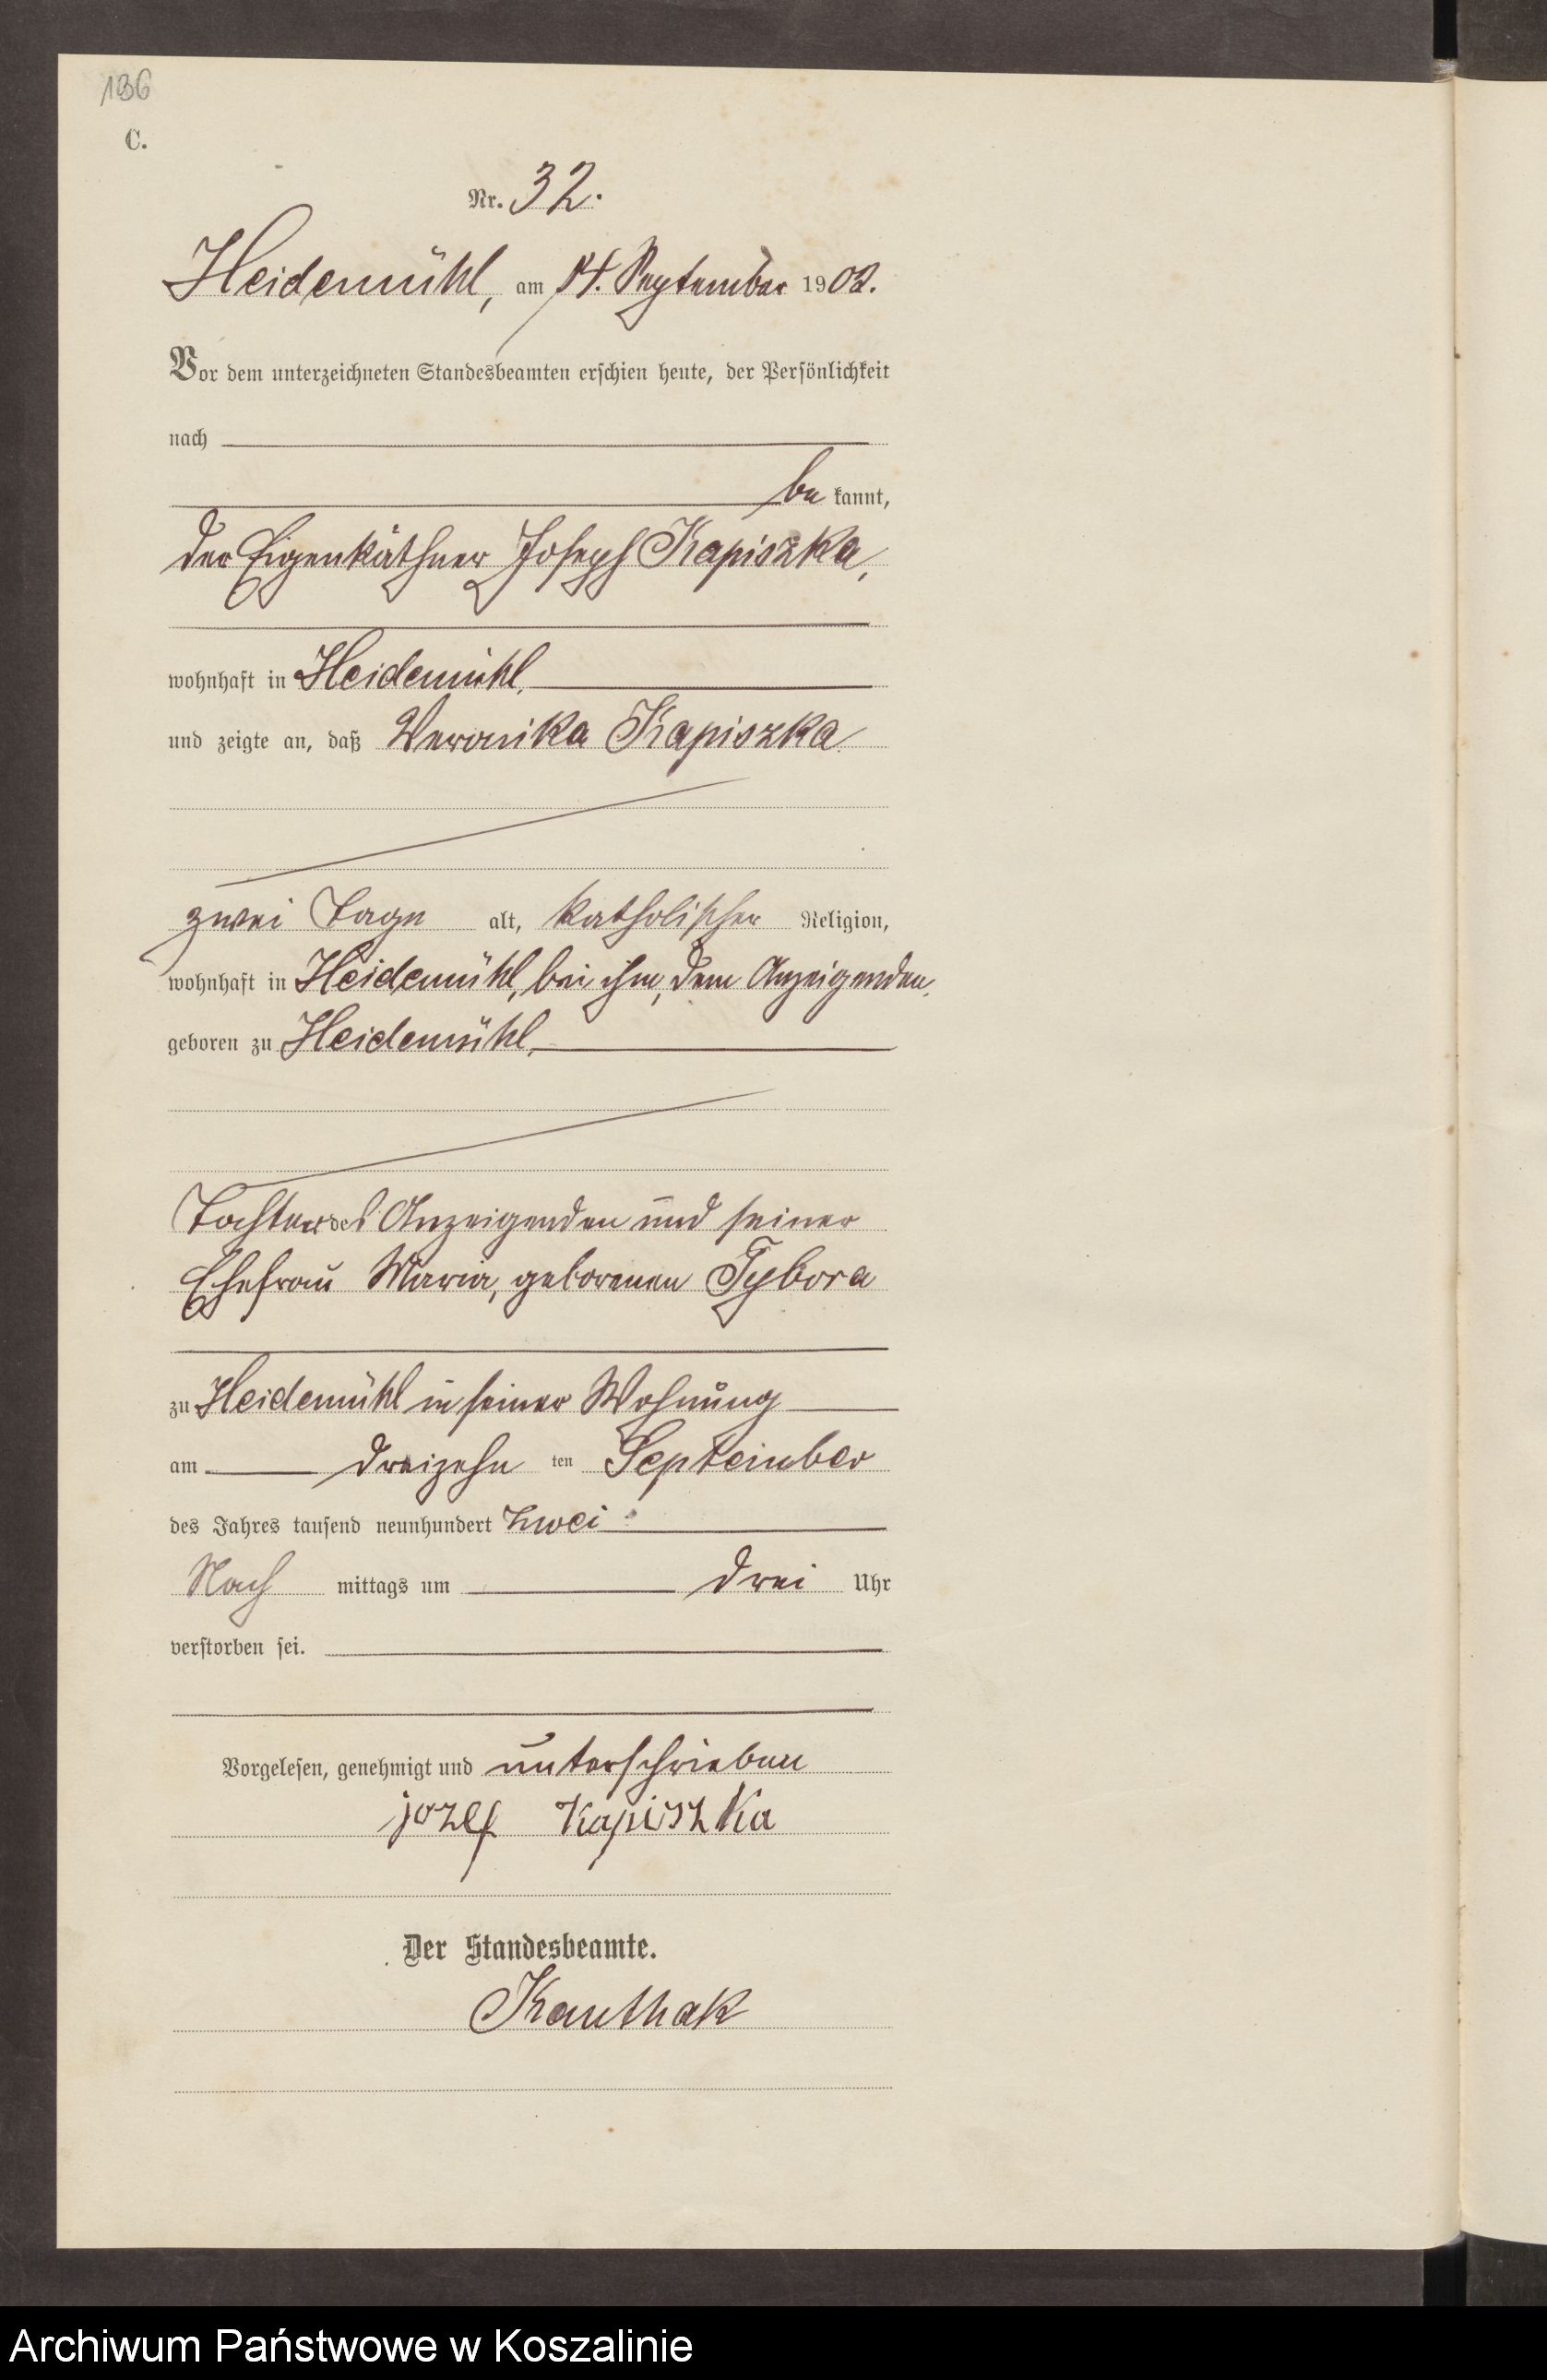 136
C.
Nr. 32.
Heidemühl, am 14. September 1902.
Vor dem unterzeichneten Standesbeamten erschien heute, der Persönlichkeit
nach
be kannt,
der Eigenkäthner Joseph Kapiszka,
wohnhaft in Heidemühl,
und zeigte an, daß Weronika Kapiszka
zwei Tage alt, katholischer Religion,
wohnhaft in Heidemühl, bei ihm, dem Anzeigenden,
geboren zu Heidemühl,
Tochter des Anzeigenden und seiner
Ehefrau Maria, geborenen Tybora
zu Heidemühl in seiner Wohnung
am dreizehn ten September
des Jahres tausend neunhundert zwei
Nach mittags um drei Uhr
verstorben sei.
Vorgelesen, genehmigt und unterschrieben
jozef Kapiszka
Der Standesbeamte.
Kauthak
Archiwum Państwowe w Koszalinie